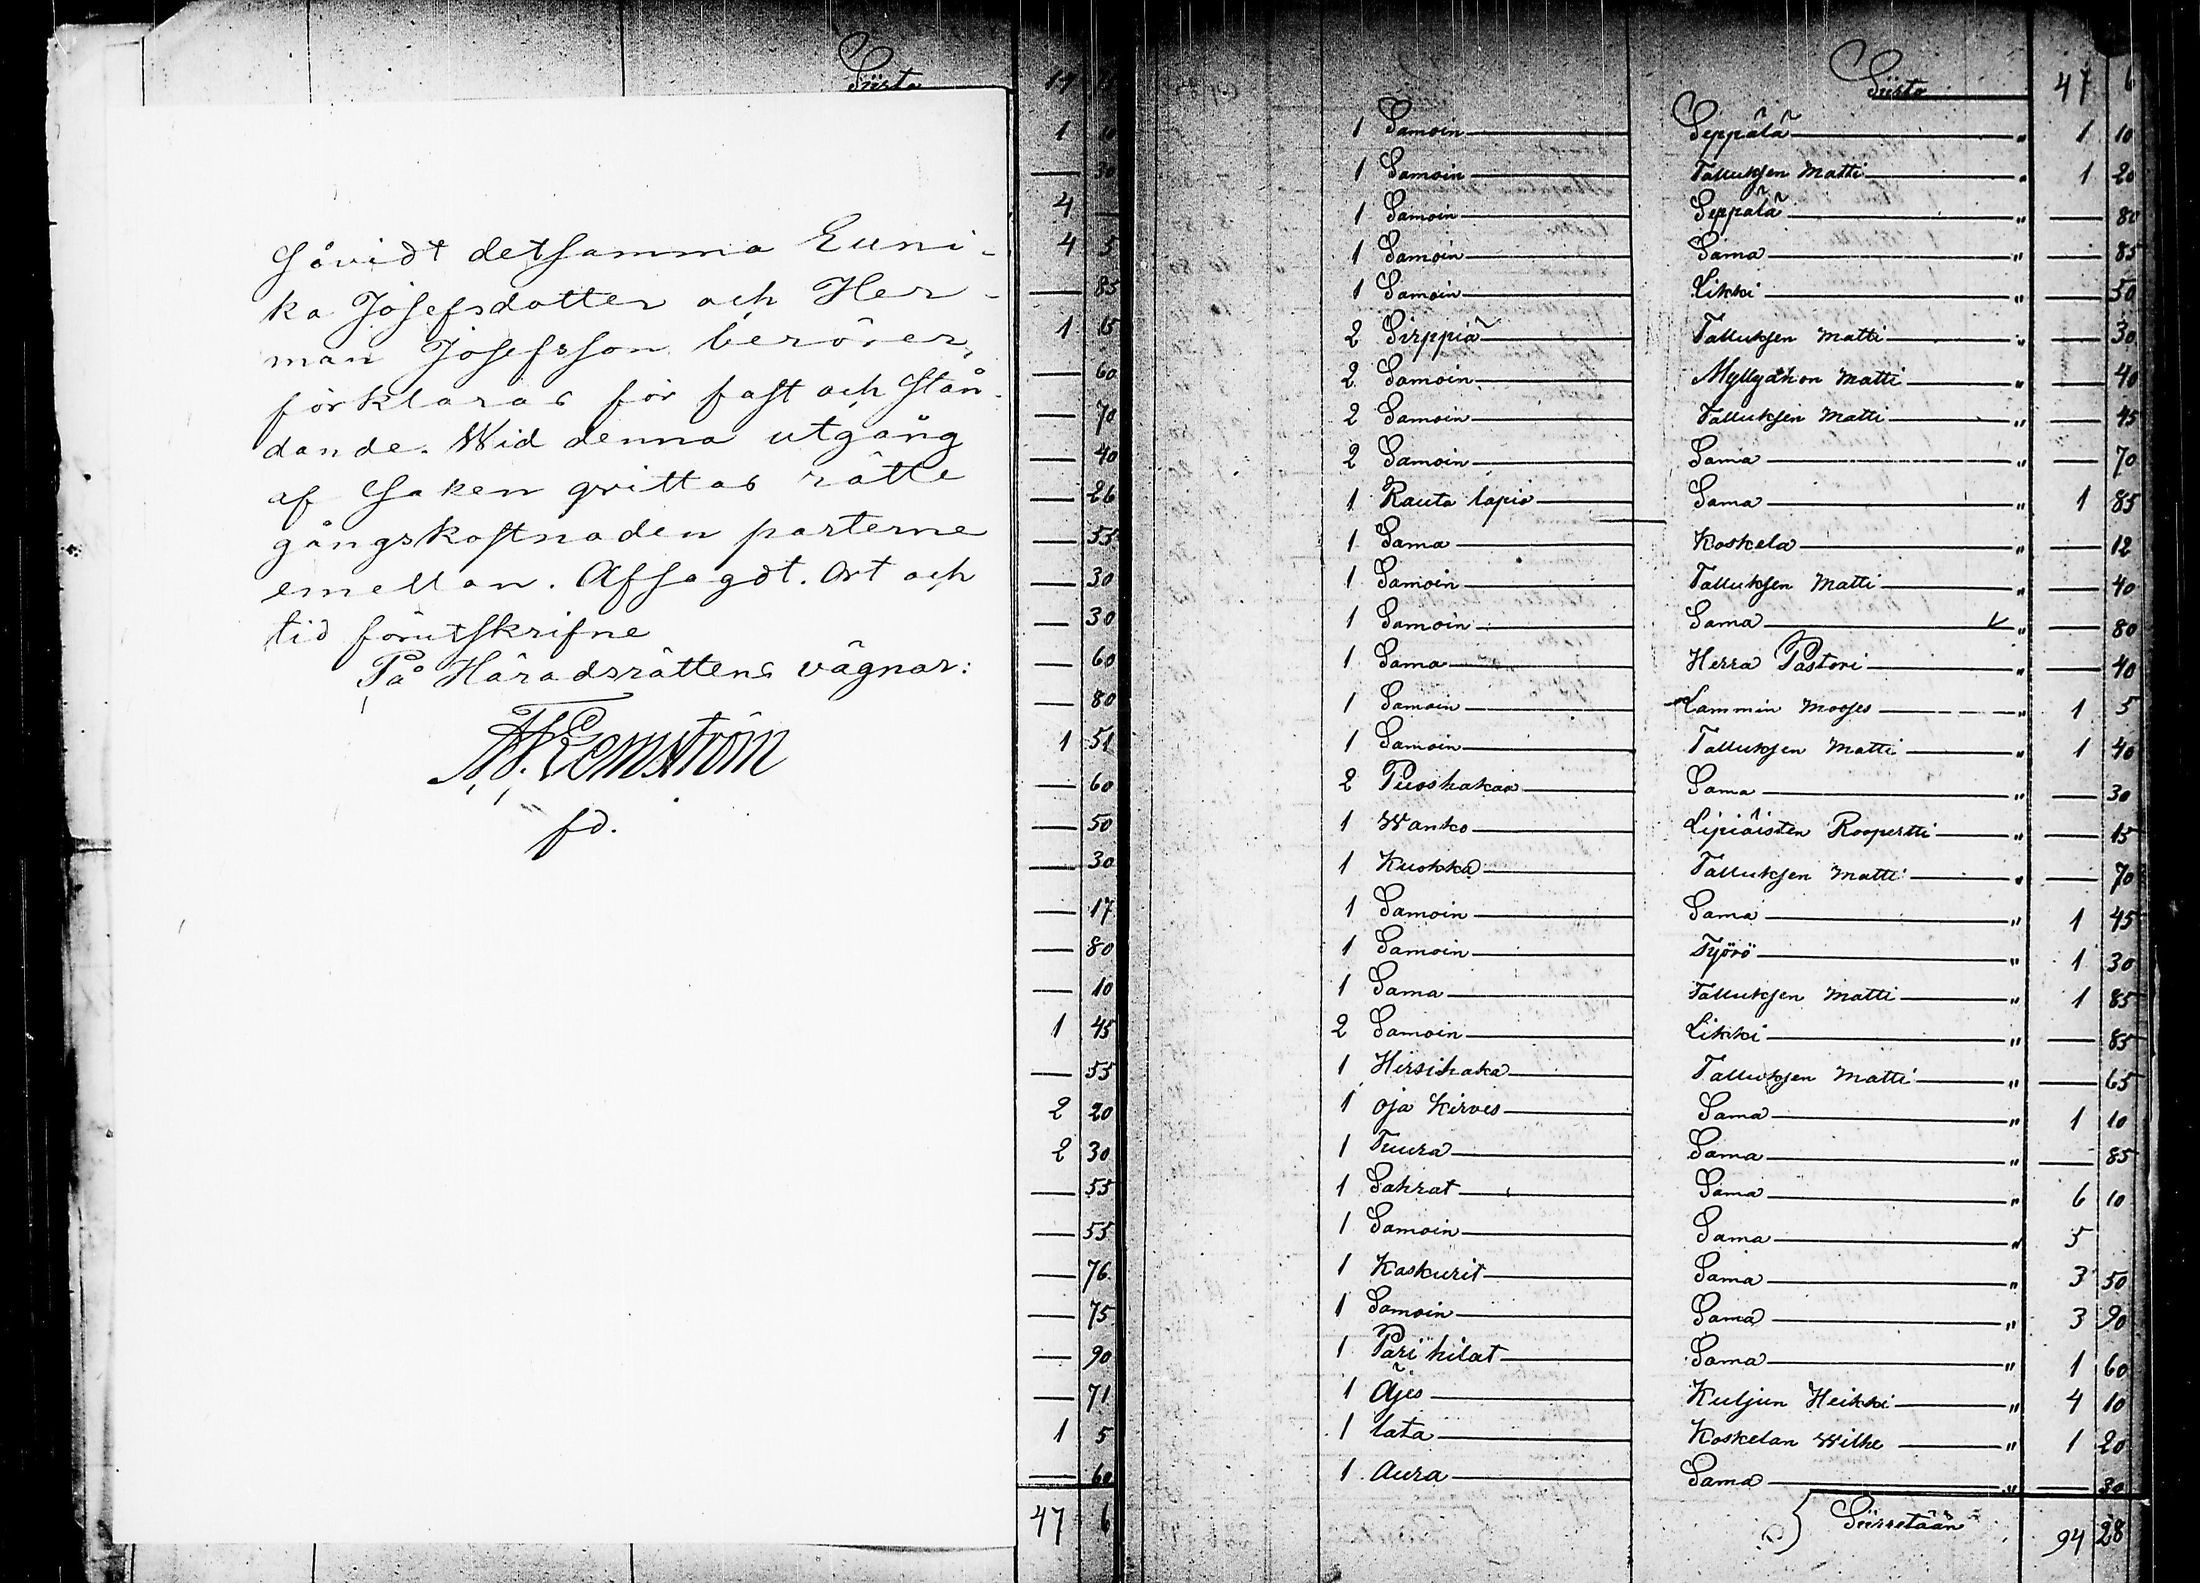 Siirto
såvidt detsamma Euni-
ka Josefsdotter och Her-
man Josefsson berörer,
förklaras för fast och stån-
dande. Wid denna utgång
af saken qvittas rätte
gångskostnaden parterne
emellan. Afsagdt. Ort och
tid förutskrifne
På Häradsrättens vägnar:
fd.
1 10
— 30
4 —
4 5
— 85
1 15
— 60
— 70
— 40
— 26
— 55
— 30
— 30
— 60
— 80
1 51
— 60
— 50
— 30
— 17
— 80
— 10
1 45
— 55
2 20
2 30
— 55
— 55
— 76
— 75
— 90
— 71
1 5
— 60
47 6
Siirto 47 6
1 Samoin Seppälä " 1 10
1 Samoin Talluksen Matti " 1 20
1 Samoin Seppälä " — 80
1 Samoin Sama " — 85
1 Samoin Likki " — 50
2 Sirppiä Talluksen Matti " — 30
2 Samoin Myllyahon Matti " — 40
2 Samoin Talluksen Matti " — 45
2 Samoin Sama " — 70
1 Rauta lapio Sama " 1 85
1 Sama Koskela " — 12
1 Samoin Talluksen Matti " — 40
1 Samoin Sama " — 80
1 Sama Herra Pastori " — 40
1 Samoin Lammin Mooses " 1 5
1 Samoin Talluksen Matti " 1 40
2 Puoshakaa Sama " — 30
1 Wanko Lipiäisten Roopertti " — 15
1 Kuokka Talluksen Matti " — 70
1 Samoin Sama " 1 45
1 Samoin Työrö " 1 30
1 Sama Talluksen Matti " 1 85
2 Samoin Likki " — 85
1 Hirsihaka Talluksen Matti " — 65
1 Oja Kirves Sama " 1 10
1 Tuura Sama " — 85
1 Sahrat Sama " 6 10
1 Samoin Sama " 5
1 Kaskurit Sama " 3 50
1 Samoin Sama " 3 90
1 Pari hilat Sama " 1 60
1 Äjes Kuljun Heikki " 4 10
1 lata Koskelan Wilhe " 1 20
1 Aura Sama " — 30
Siirretään 94 28